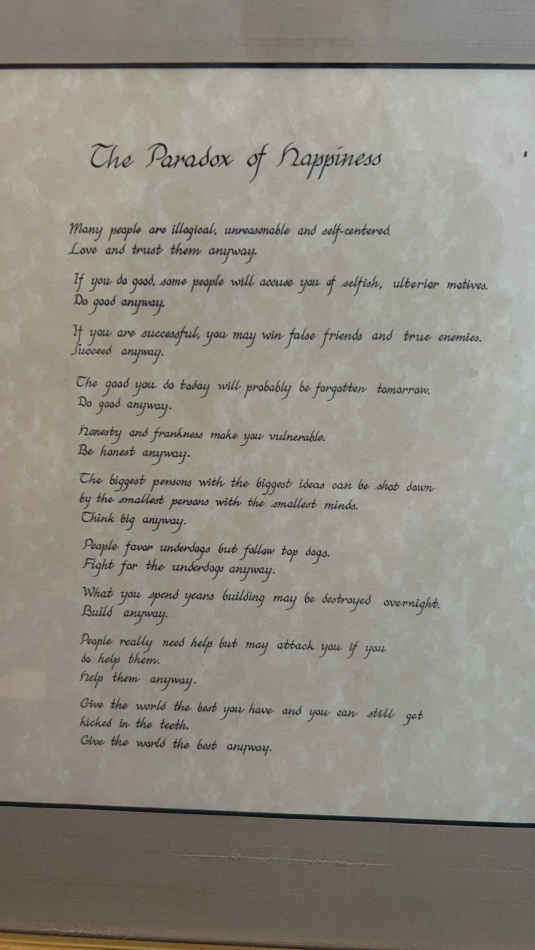 The Paradox of Happiness
Many people are illogical, unreasonable and self-centered.
Love and trust them anyway.
If you do good, some people will accuse you of selfish, ulterior motives.
Do good anyway.
If you are successful, you may win false friends and true enemies.
Succeed anyway.
The good you do today will probably be forgotten tomorrow.
Do good anyway.
Honesty and frankness make you vulnerable.
Be honest anyway.
The biggest persons with the biggest ideas can be shot down
by the smallest persons with the smallest minds.
Think big anyway.
People favor underdogs but follow top dogs.
Fight for the underdogs anyway.
What you spend years building may be destroyed overnight.
Build anyway.
People really need help but may attack you if you
do help them.
Help them anyway.
Give the world the best you have and you can still get
kicked in the teeth.
Give the world the best anyway.